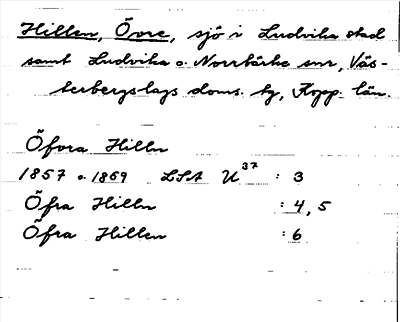 Hillen, Övre, sjö i Ludvika stad
samt Ludvika o. Norrbärke snr, Väs-
terbergslags doms. hg, Kopp. län.
Öfvra Hilln
1857 o. 1859 LSA U37 : 3
Öfra Hilln : 4, 5
Öfra Hillen : 6